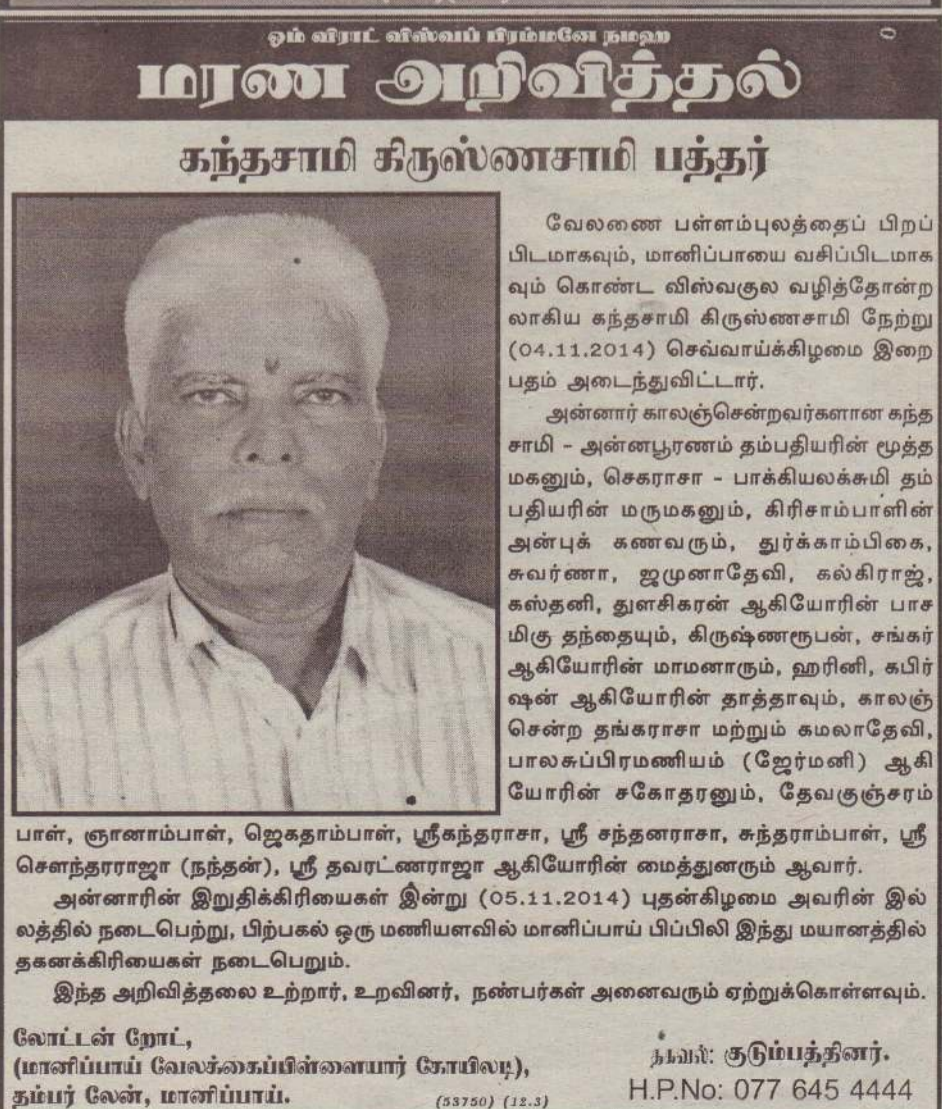 ஓம் விராட் விஸ்வப் பிரம்மனே நமஹ
மரண அறிவித்தல்
கந்தசாமி கிருஸ்ணசாமி பத்தர்
வேலணை பள்ளம்புலத்தைப் பிறப்
பிடமாகவும், மானிப்பாயை வசிப்பிடமாக
வும் கொண்ட விஸ்வகுல வழித்தோன்ற
லாகிய கந்தசாமி கிருஸ்ணசாமி நேற்று
(04.11.2014) செவ்வாய்க்கிழமை இறை
பதம் அடைந்துவிட்டார்.
அன்னார் காலஞ்சென்றவர்களான கந்த
சாமி - அன்னபூரணம் தம்பதியரின் மூத்த
மகனும், செகராசா - பாக்கியலக்சுமி தம்
பதியரின் மருமகனும், கிரிசாம்பாளின்
அன்புக் கணவரும், துர்க்காம்பிகை,
சுவர்ணா, ஜமுனாதேவி, கல்கிராஜ்,
கஸ்தனி, துளசிகரன் ஆகியோரின் பாச
மிகு தந்தையும், கிருஷ்ணரூபன், சங்கர்
ஆகியோரின் மாமனாரும், ஹரினி, கபிர்
ஷன் ஆகியோரின் தாத்தாவும், காலஞ்
சென்ற தங்கராசா மற்றும் கமலாதேவி,
பாலசுப்பிரமணியம் (ஜேர்மனி) ஆகி
யோரின் சகோதரனும், தேவகுஞ்சரம்
பாள், ஞானாம்பாள், ஜெகதாம்பாள், ஸ்ரீகந்தராசா, ஸ்ரீ சந்தனராசா, சுந்தராம்பாள், ஸ்ரீ
சௌந்தரராஜா (நந்தன்), ஸ்ரீ தவரட்ணராஜா ஆகியோரின் மைத்துனரும் ஆவார்.
அன்னாரின் இறுதிக்கிரியைகள் இன்று (05.11.2014) புதன்கிழமை அவரின் இல்
லத்தில் நடைபெற்று, பிற்பகல் ஒரு மணியளவில் மானிப்பாய் பிப்பிலி இந்து மயானத்தில்
தகனக்கிரியைகள் நடைபெறும்.
இந்த அறிவித்தலை உற்றார், உறவினர், நண்பர்கள் அனைவரும் ஏற்றுக்கொள்ளவும்.
லோட்டன் றோட்,
(மானிப்பாய் வேலக்கைப்பிள்ளையார் கோயிலடி),
தம்பர் லேன், மானிப்பாய்.
தகவல்: குடும்பத்தினர்.
H.P.No: 077 645 4444
(53750) (12.3)